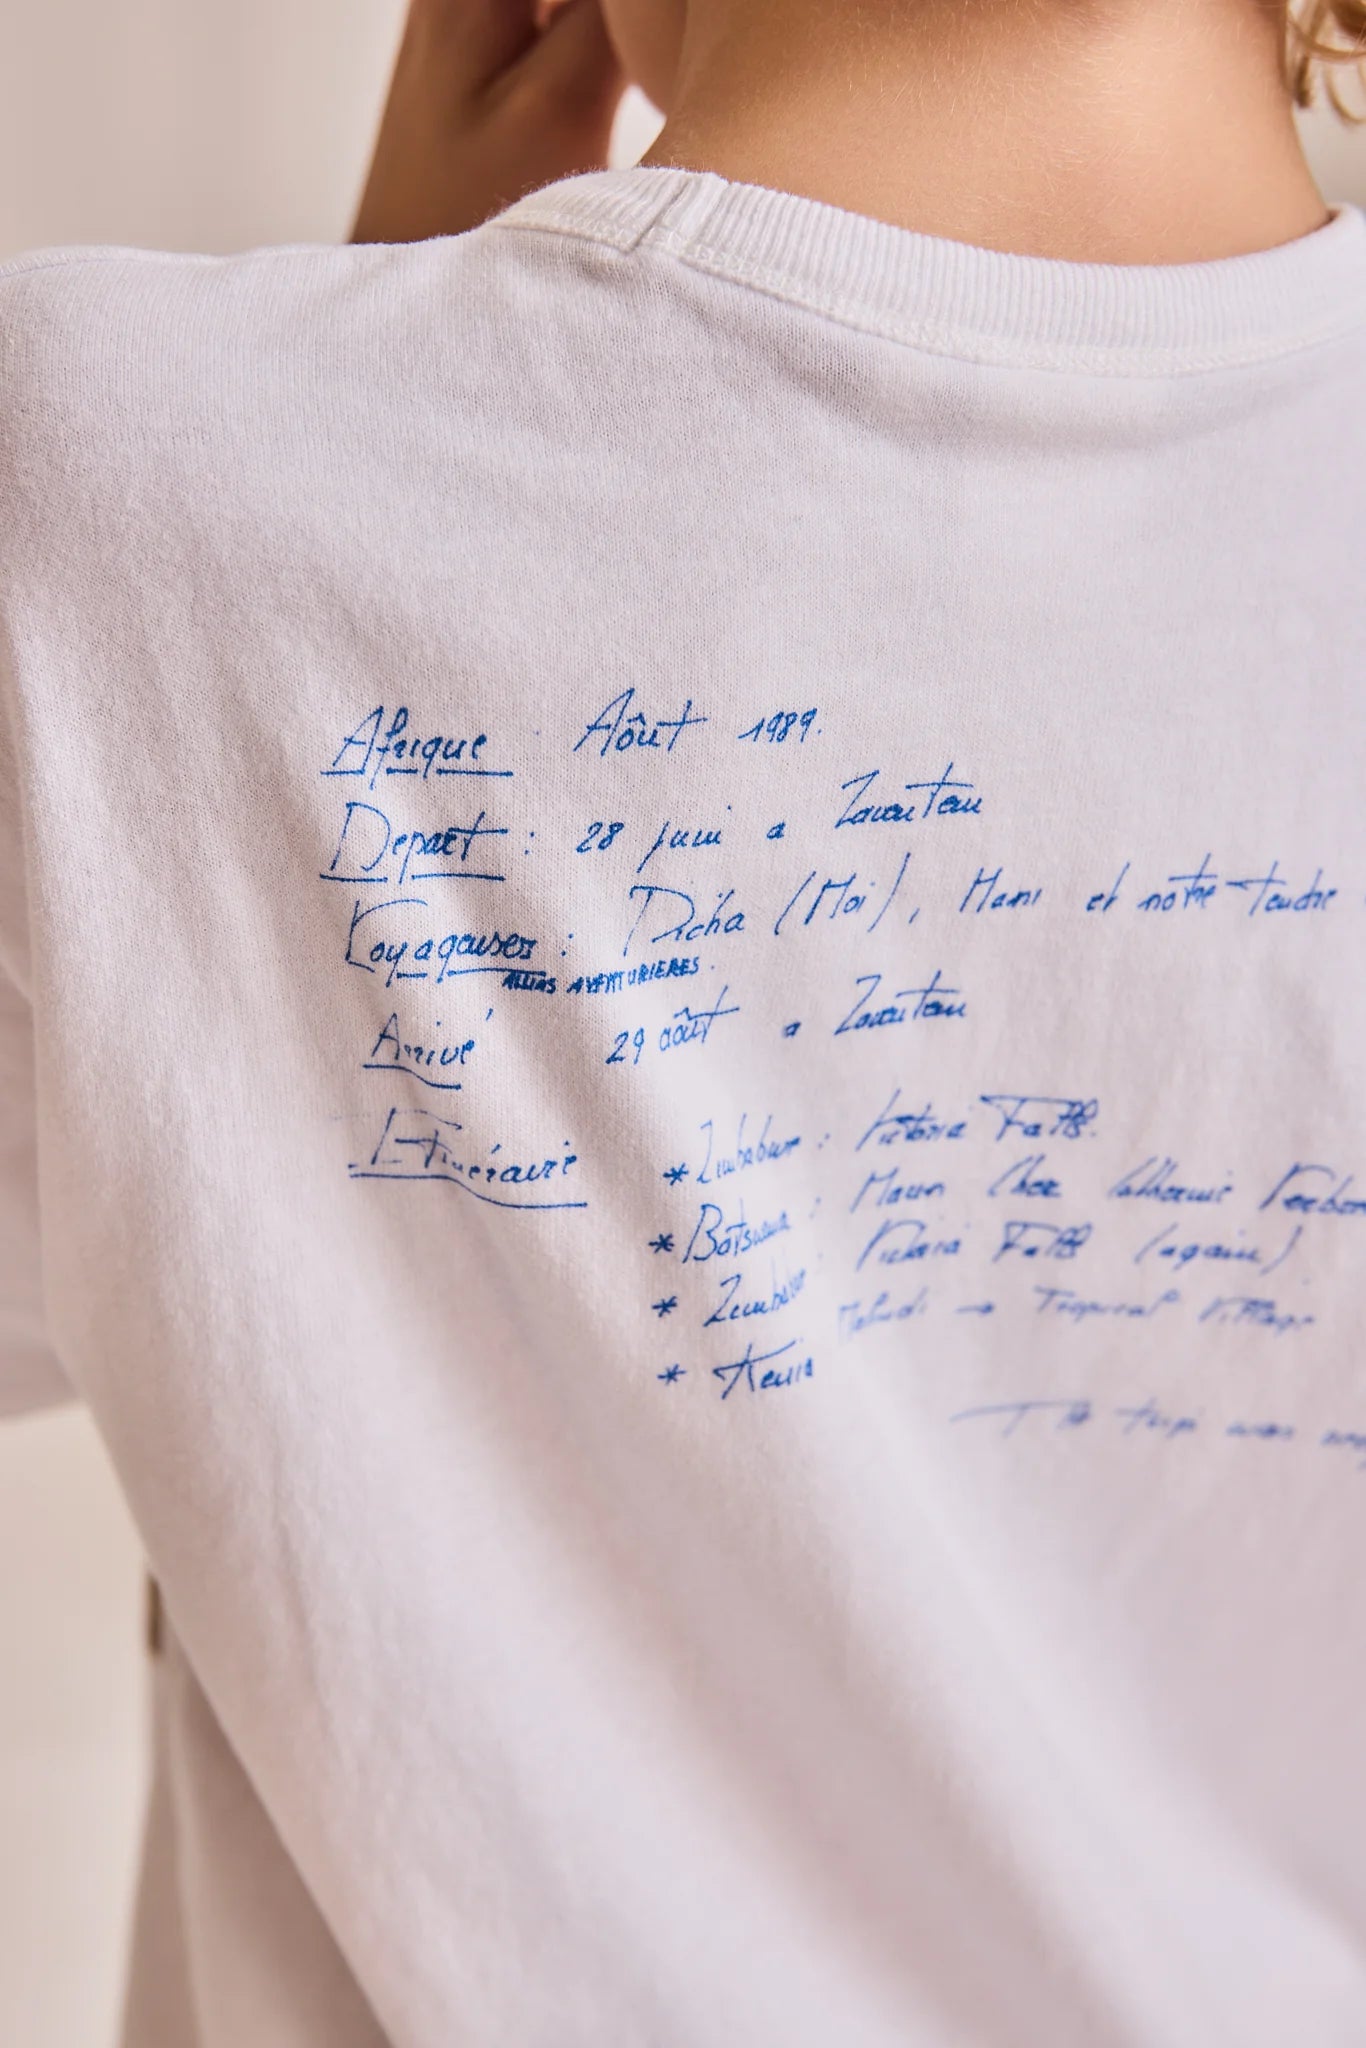 Afrique Aôut 1989.
Depart : 28 juin a Zavuitem
Voyageuses : Dicha (Moi), Mami et notre tendre
ALLIAS AVENTURIERES.
Arrivé 29 aôut a
Itinéraire * Zimbabwe : Victoria Falls.
* Botswana : Maun Chez Catherine
* Zimbabwe : Victoria Falls (again)
* Kenia Malindi → Tropical Village
trip was